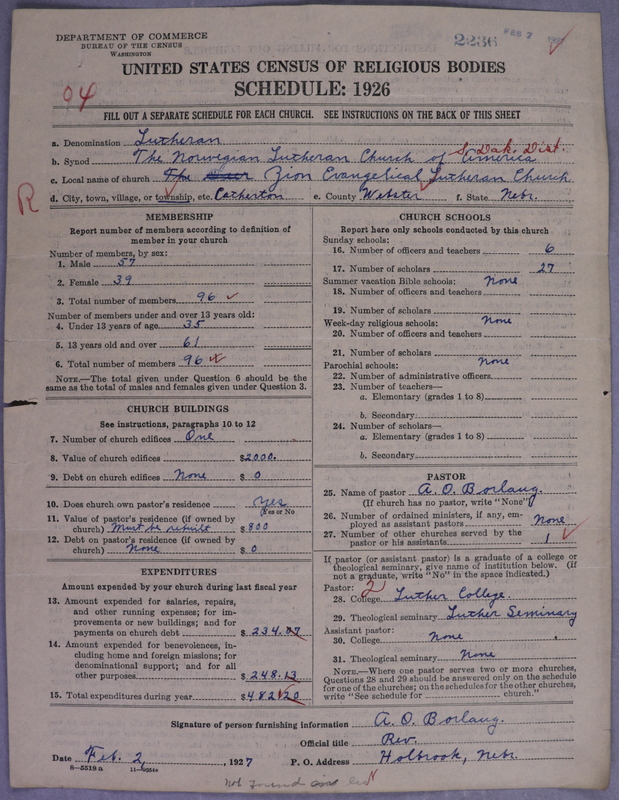 DEPARTMENT OF COMMERCE
BUREAU OF THE CENSUS
WASHINGTON
2236 FEB 7
UNITED STATES CENSUS OF RELIGIOUS BODIES
SCHEDULE: 1926
04
FILL OUT A SEPARATE SCHEDULE FOR EACH CHURCH. SEE INSTRUCTIONS ON THE BACK OF THIS SHEET
a. Denomination Lutheran
S. Dak. Dist.
b. Synod The Norwegian Lutheran Church of America
c. Local name of church The Zion Evangelical Lutheran Church
d. City, town, village, or township, etc. Catherton e. County Webster f. State Nebr.
R
MEMBERSHIP
Report number of members according to definition of
member in your church
Number of members, by sex:
1. Male 57
2. Female 39
3. Total number of members 96
Number of members under and over 13 years old:
4. Under 13 years of age 35
5. 13 years old and over 61
6. Total number of members 96
NOTE.—The total given under Question 6 should be the
same as the total of males and females given under Question 3.
CHURCH BUILDINGS
See instructions, paragraphs 10 to 12
7. Number of church edifices One
8. Value of church edifices $2000.
9. Debt on church edifices None $ 0
10. Does church own pastor's residence Yes
(Yes or No)
11. Value of pastor's residence (if owned by
church) Must be rebuilt $ 800
12. Debt on pastor's residence (if owned by
church) None $ 0
EXPENDITURES
Amount expended by your church during last fiscal year
13. Amount expended for salaries, repairs,
and other running expenses; for im-
provements or new buildings; and for
payments on church debt $ 234.07
14. Amount expended for benevolences, in-
cluding home and foreign missions; for
denominational support; and for all
other purposes $ 248.13
15. Total expenditures during year $ 482.20
CHURCH SCHOOLS
Report here only schools conducted by this church
Sunday schools:
16. Number of officers and teachers 6
17. Number of scholars 27
Summer vacation Bible schools: None
18. Number of officers and teachers
19. Number of scholars
Week-day religious schools: None
20. Number of officers and teachers
21. Number of scholars
Parochial schools: None
22. Number of administrative officers
23. Number of teachers—
a. Elementary (grades 1 to 8)
b. Secondary
24. Number of scholars—
a. Elementary (grades 1 to 8)
b. Secondary
PASTOR
25. Name of pastor A. O. Borlaug.
(If church has no pastor, write "None")
26. Number of ordained ministers, if any, em-
ployed as assistant pastors None
27. Number of other churches served by the
pastor or his assistants 1
If pastor (or assistant pastor) is a graduate of a college or
theological seminary, give name of institution below. (If
not a graduate, write "No" in the space indicated.)
Pastor: 2
28. College Luther College.
29. Theological seminary Luther Seminary
Assistant pastor:
30. College None
31. Theological seminary None
NOTE.—Where one pastor serves two or more churches,
Questions 28 and 29 should be answered only on the schedule
for one of the churches; on the schedules for the other churches,
write "See schedule for church."
Signature of person furnishing information A. O. Borlaug.
Official title Rev.
Date Feb. 2, 1927 P. O. Address Holbrook, Nebr.
8—5519 a
not found